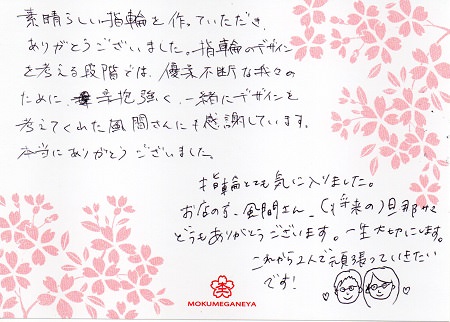 素晴らしい指輪を作っていただき
ありがとうございました。指輪のデザイン
を考える段階では、優柔不断な我々の
ために、辛抱強く、一緒にデザインを
考えてくれた風間さんにも感謝しています。
本当にありがとうございました。
指輪とても気に入りました。
風間さん、(将来の)旦那サマ
どうもありがとうございます。一生大切にします。
これから2人で頑張っていきたい
です!
MOKUMEGANEYA